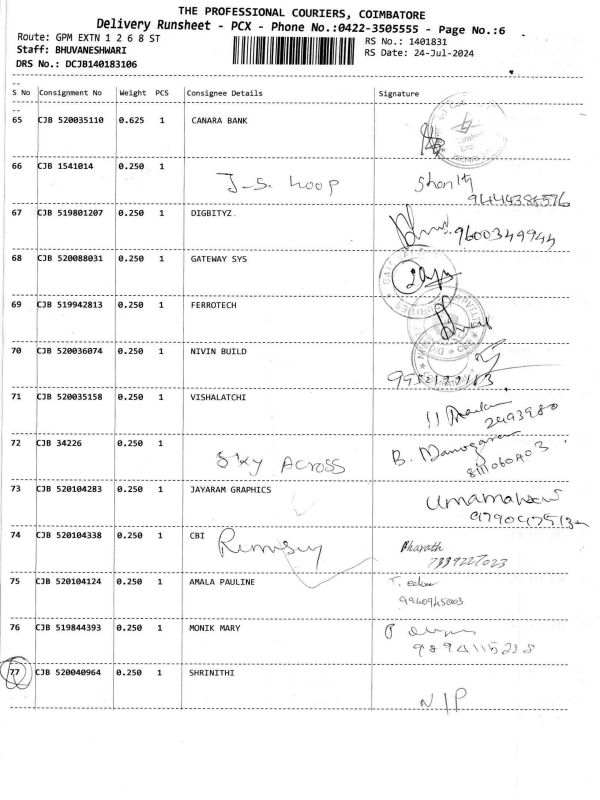 THE PROFESSIONAL COURIERS, COIMBATORE
Delivery Runsheet - PCX - Phone No.:0422-3505555 - Page No.:6
Route: GPM EXTN 1 2 6 8 ST
RS No.: 1401831
Staff: BHUVANESHWARI
RS Date: 24-Jul-2024
DRS No.: DCJB140183106
S No Consignment No Weight PCS Consignee Details Signature
65 CJB 520035110 0.625 1 CANARA BANK
66 CJB 1541014 0.250 1
J-S. hoop
9444386576
67 CJB 519801207 0.250 1 DIGBITYZ.
9600349944
68 CJB 520088031 0.250 1 GATEWAY SYS
69 CJB 519942813 0.250 1 FERROTECH
70 CJB 520036074 0.250 1 NIVIN BUILD
71 CJB 520035158 0.250 1 VISHALATCHI
2493980
72 CJB 34226 0.250 1
Sky Across
B. Manogaran
73 CJB 520104283 0.250 1 JAYARAM GRAPHICS
74 CJB 520104338 0.250 1 CBI
Bharath
7339227023
75 CJB 520104124 0.250 1 AMALA PAULINE
9940945003
76 CJB 519844393 0.250 1 MONIK MARY
9894115238
77 CJB 520040964 0.250 1 SHRINITHI
N/P